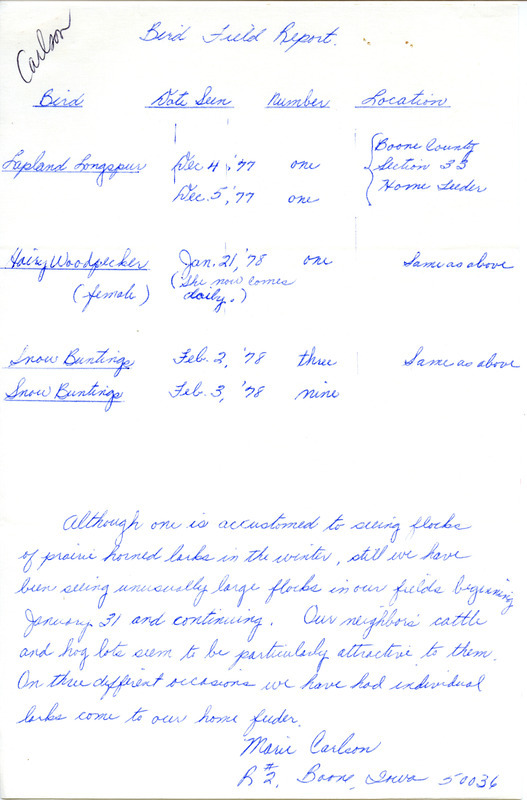 Carlson
Bird Field Report.
Bird Date Seen Number Location
Lapland Longspur Dec. 4, '77 one Boone County
Section 33
Dec. 5, '77 one Home Feeder
Hairy Woodpecker Jan. 21, '78 one Same as above
(female) (She now comes
daily.)
Snow Buntings Feb. 2, '78 three Same as above
Snow Buntings Feb. 3, '78 nine
Although one is accustomed to seeing flocks
of prairie horned larks in the winter, still we have
been seeing unusually large flocks in our fields beginning
January 31 and continuing. Our neighbors cattle
and hog lots seem to be particularly attractive to them.
On three different occasions we have had individual
larks come to our home feeder.
Marie Carlson
R #2, Boone, Iowa 50036